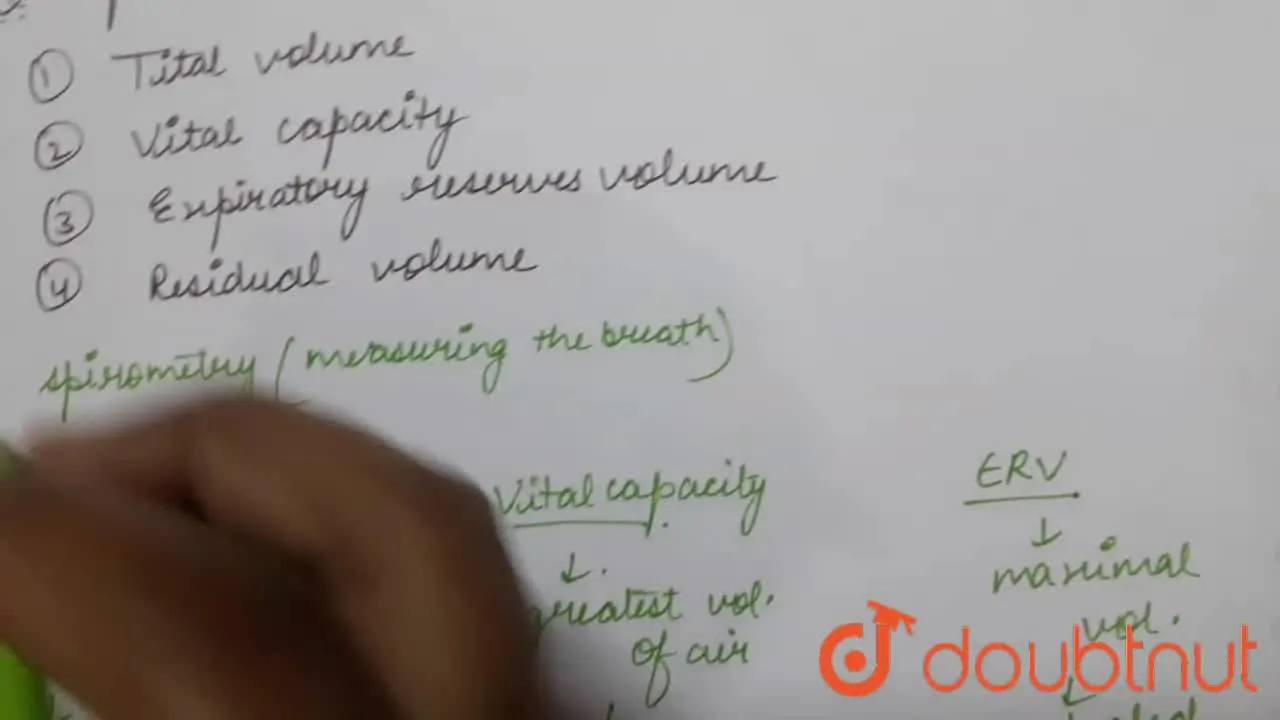 ① Tital volume
② Vital capacity
③ Expiratory reserves volume
④ Residual volume
spirometry (measuring the breath)
Vital capacity
↓
greatest vol.
of air
ERV
↓
maximal
vol.
↓
doubtnut